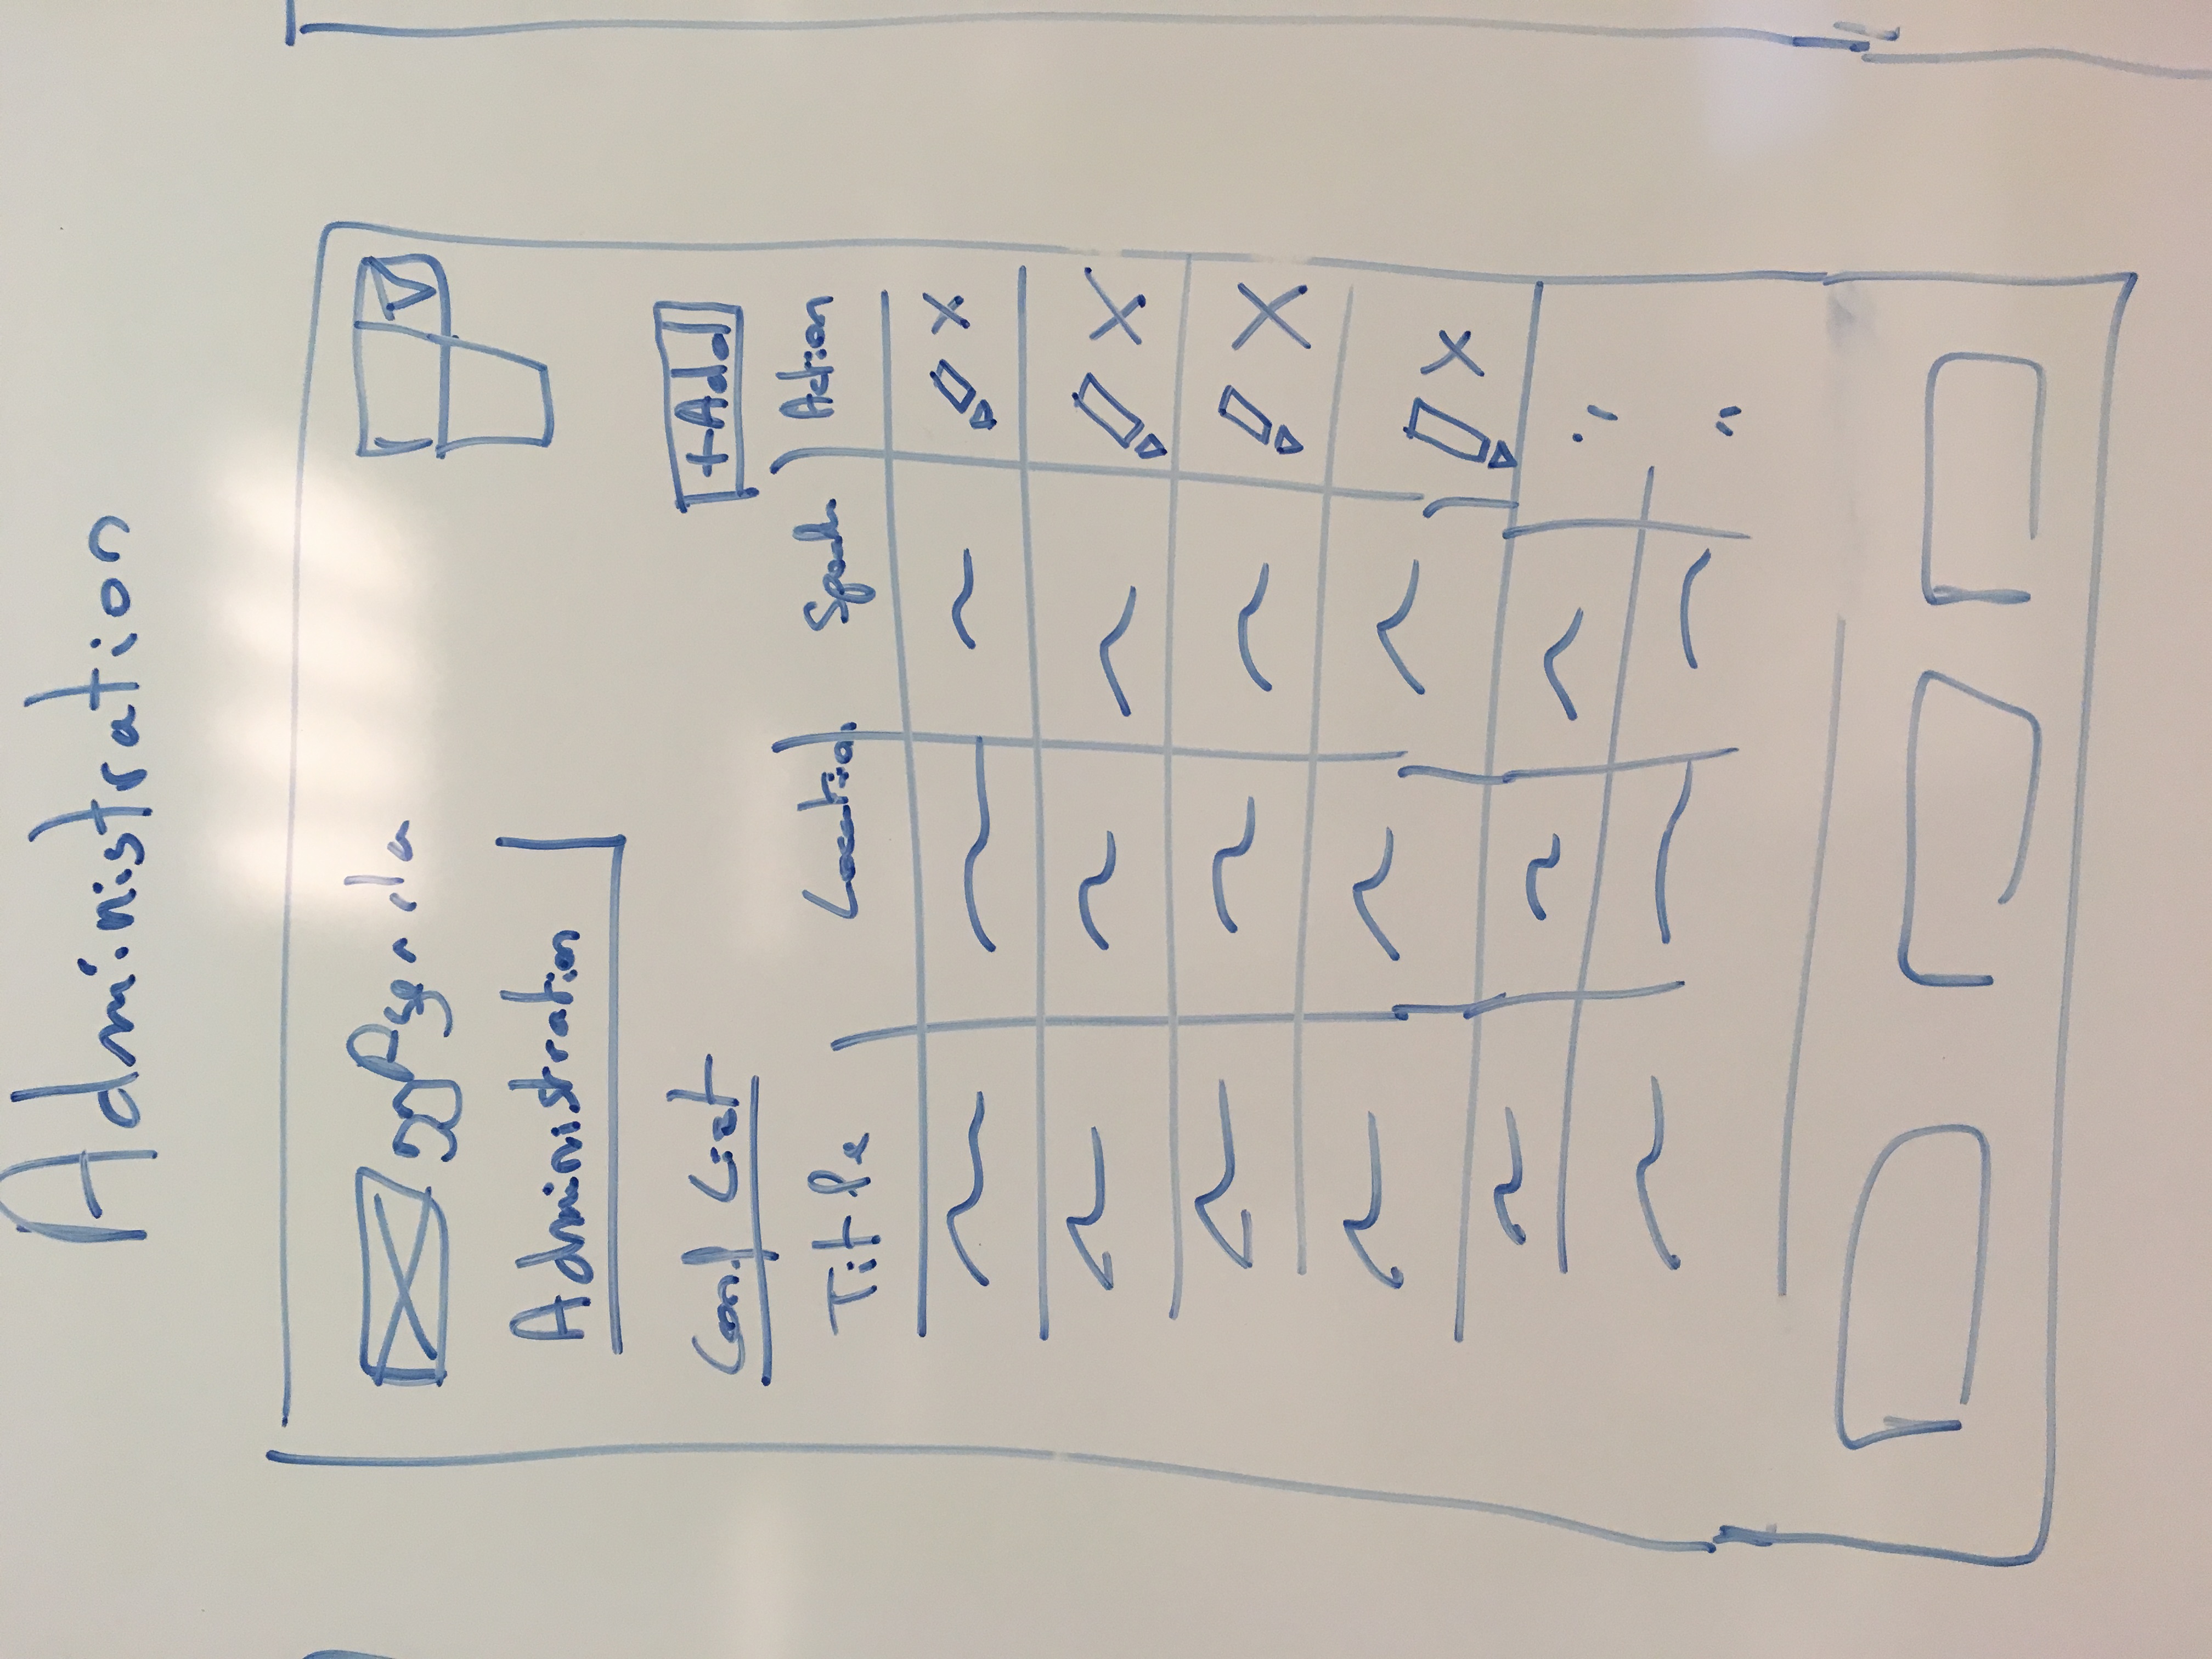 Administration
ggAgenda
Administration
Conf List
+Add
Title Location Action